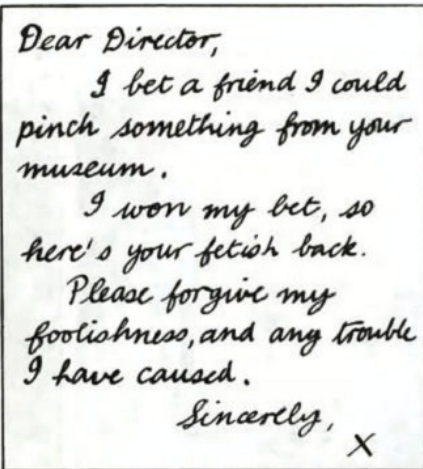 Dear Director,
I bet a friend I could
pinch something from your
museum.
I won my bet, so
here's your fetish back.
Please forgive my
foolishness, and any trouble
I have caused.
Sincerely,
X